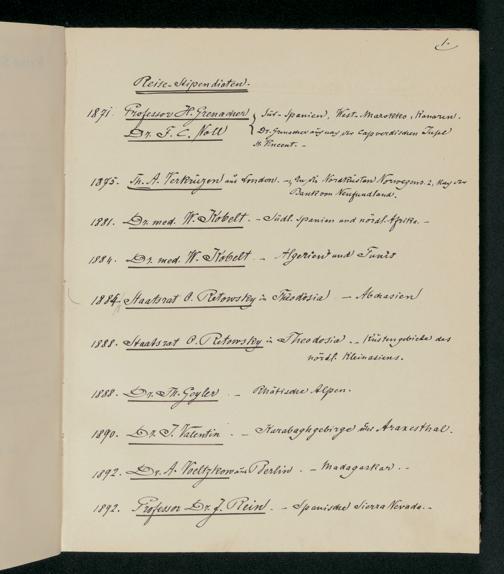 1.
Reise-Stipendiaten.
1871. Professor H. Grenacher } Süd-Spanien, West-Marokko, Kanaren.
Dr. F. C. Noll Dr. Grenacher ausserdem Capverdischen Insel
St. Vincent. -
1875. Th. A. Verkrüzen aus London. - An die Nordküsten Norwegens 2, nach der
Bank von Neufundland.
1881. Dr. med. W. Kobelt. - Südl. Spanien und nördl. Afrika. -
1884. Dr. med. W. Kobelt - Algerien und Tunis
1884 Staatsrat O. Retowsky in Theodosia - Abchasien
1888. Staatsrat O. Retowsky in Theodosia. - Küstengebiete des
nördl. Kleinasiens.
1888. Dr. Th. Geyler - Rhätische Alpen.
1890. Dr. J. Valentin. - Karabaghgebirge und Araxesthal.
1892. Dr. A. Voeltzkow aus Berlin. - Madagaskar. -
1892. Professor Dr. J. Rein. - Spanische Sierra Nevada. -